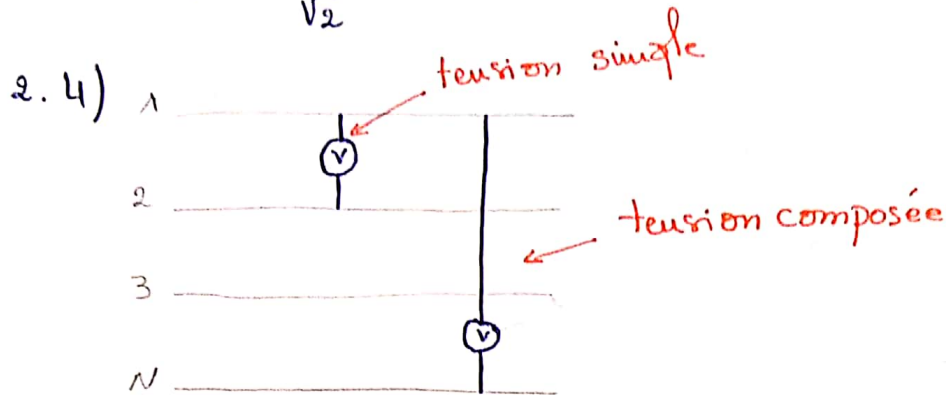 V2
tension simple
2.4) 1
V
2
tension composée
3
V
N